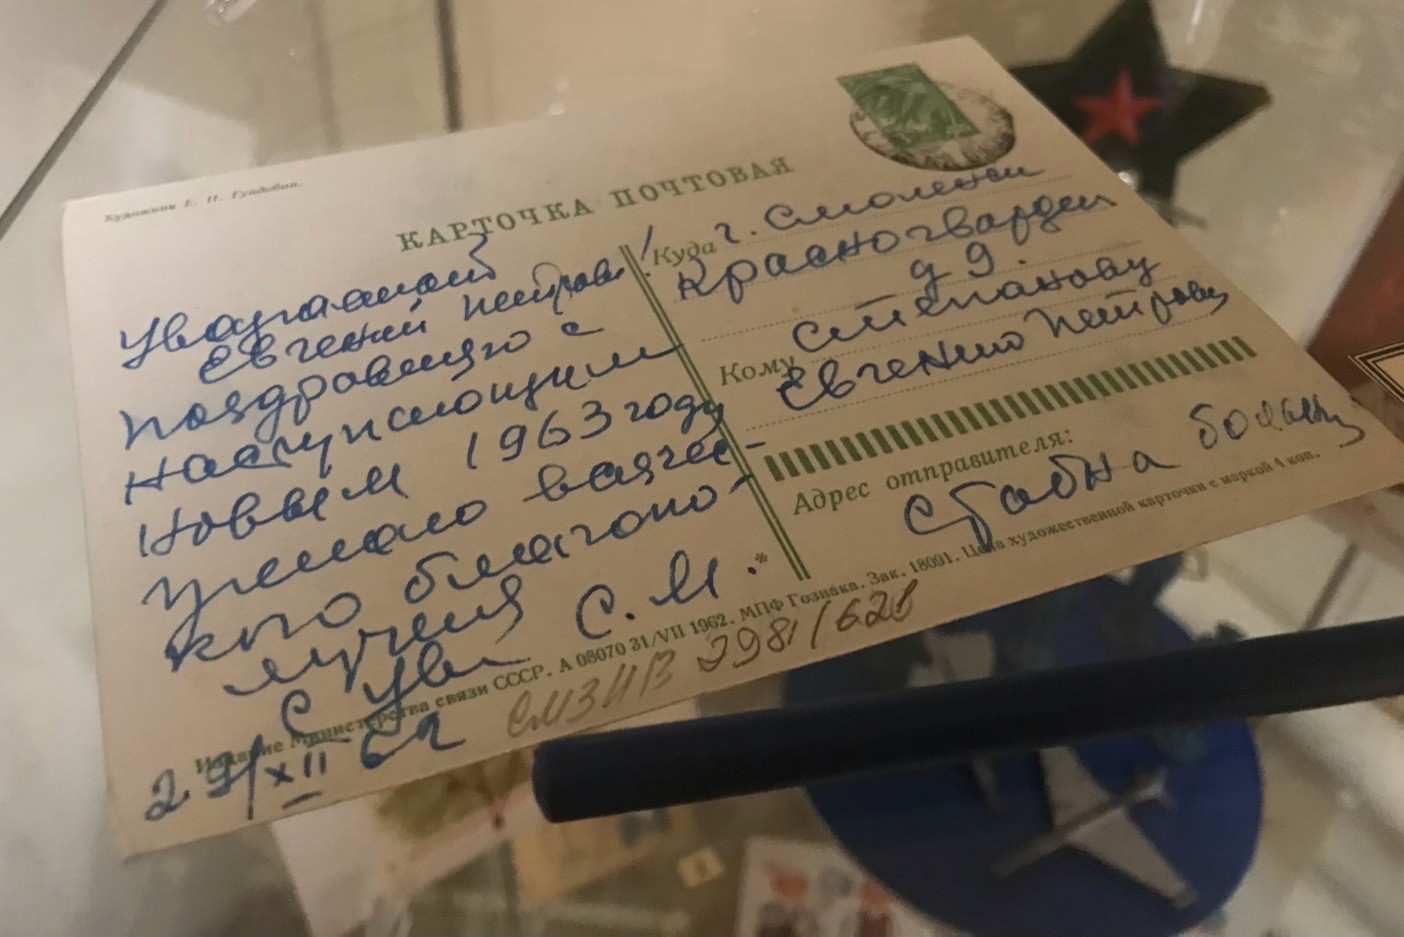 Художник Е. П. Гундобин.
КАРТОЧКА ПОЧТОВАЯ
Уважаемый
Евгений Петрович!
Поздравляю с
наступающим
Новым 1963 году
Желаю всяче-
кого благопо-
лучия
С ув. С. М.
29/XII 62
Куда г. Смоленск
Красногвардей
д 9.
Кому Степанову
Евгению Петрову
Адрес отправителя:
Издание Министерства связи СССР. А 08070 31/VII 1962. МПФ Гознака. Зак. 18091. Цена художественной карточки с маркой 4 коп.
СМЗИВ 2981/628